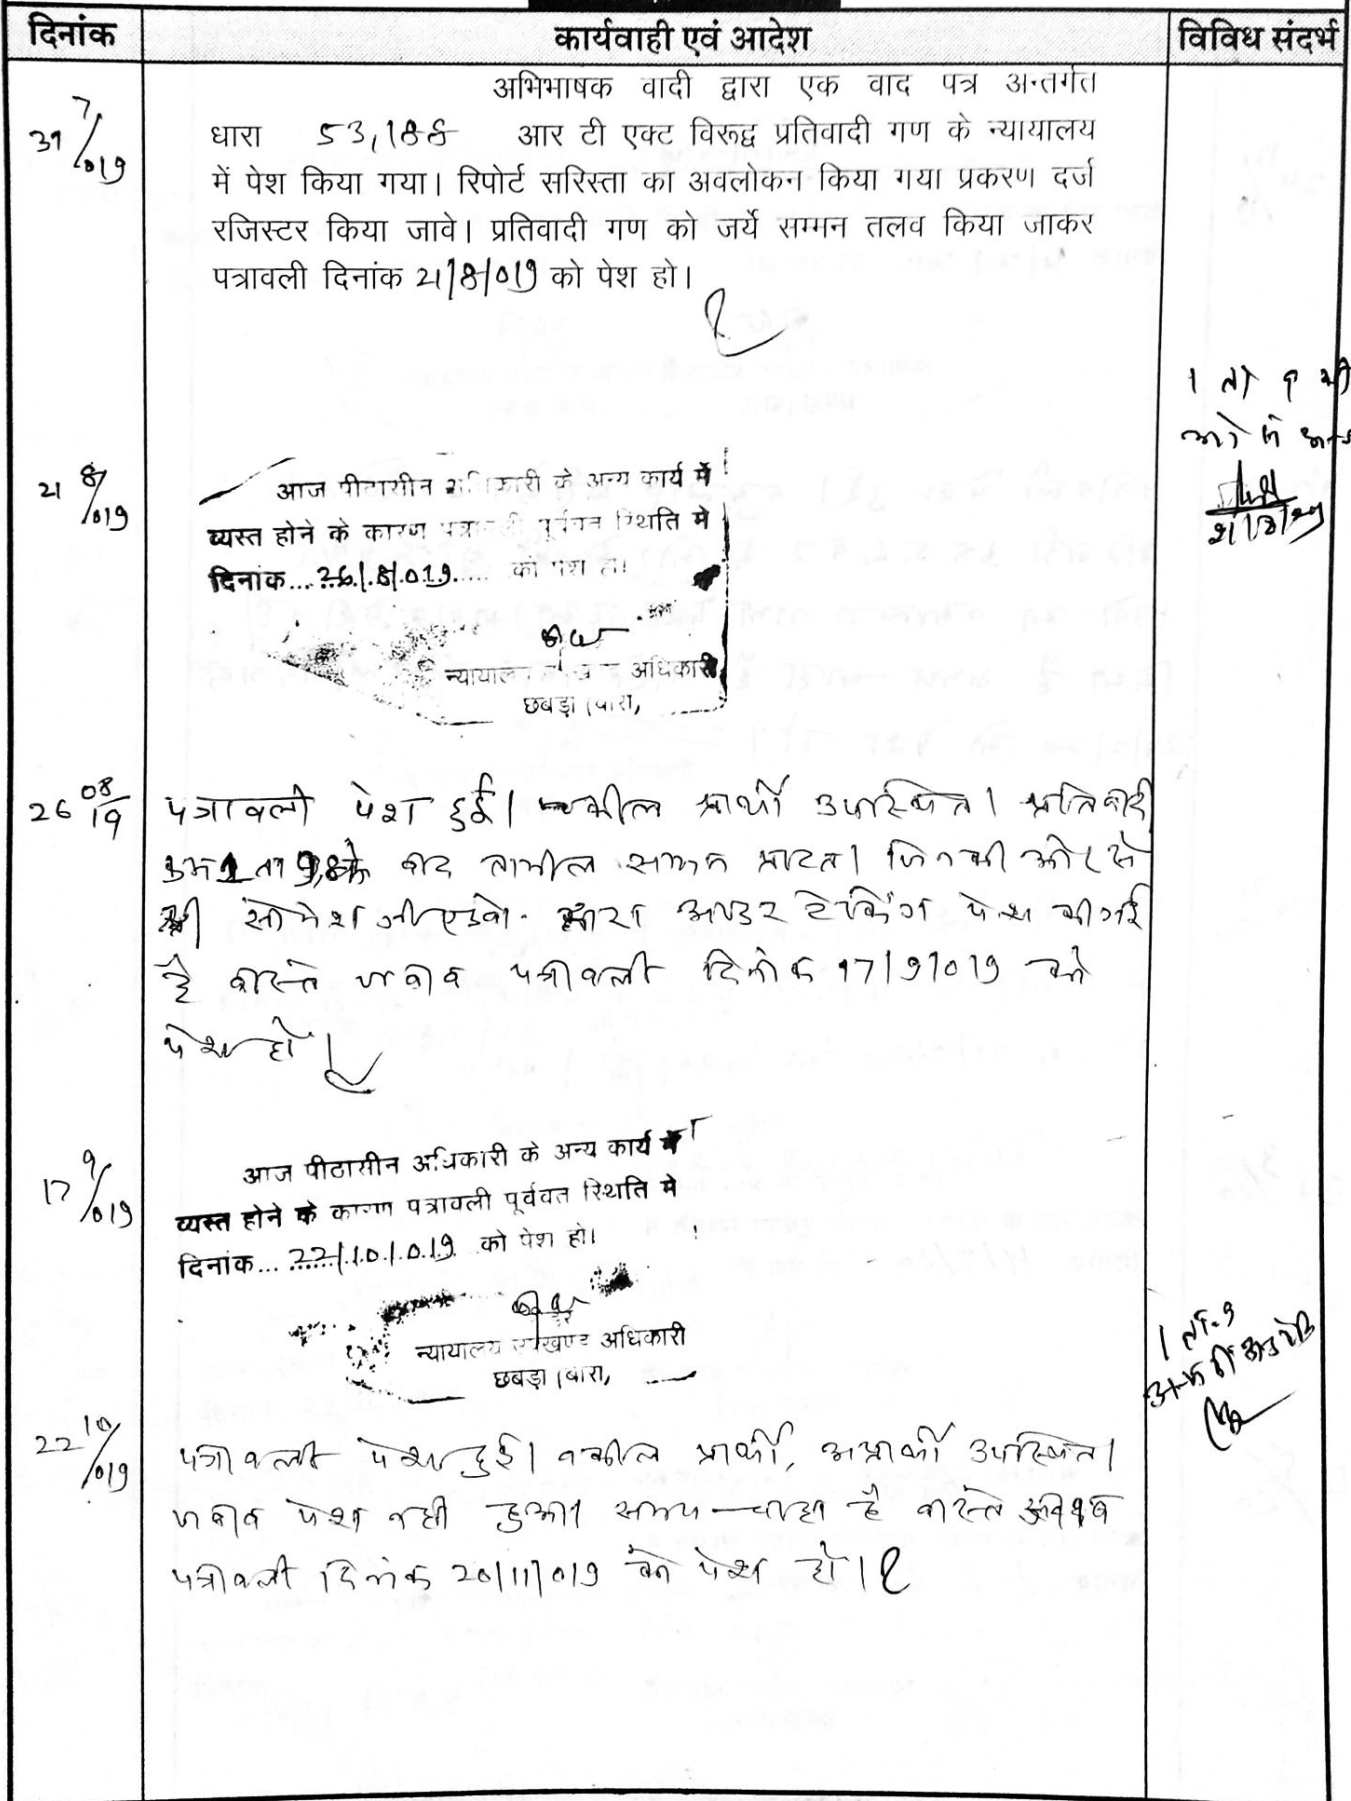 दिनांक कार्यवाही एवं आदेश विविध संदर्भ
अभिभाषक वादी द्वारा एक वाद पत्र अन्तर्गत
31/7/019 धारा 53,188 आर टी एक्ट विरूद्व प्रतिवादी गण के न्यायालय
में पेश किया गया। रिपोर्ट सरिस्ता का अवलोकन किया गया प्रकरण दर्ज
रजिस्टर किया जावे। प्रतिवादी गण को जर्ये सम्मन तलव किया जाकर
पत्रावली दिनांक 21/8/019 को पेश हो।
21/8/019 आज पीठासीन अधिकारी के अन्य कार्य में
व्यस्त होने के कारण पत्रावली पूर्ववत स्थिति मे
दिनांक... 26/8/019 .... को पेश हो।
न्यायालय अधिकारी
छबड़ा (बारा,
21/8/19
26 08/19 पत्रावली पेश हुई। वकील प्रार्थी उपस्थित। प्रतिवादी
बाद तामील सम्मन प्राप्त। जिनकी ओर से
श्री सोमेश जी एडवो. द्वारा अण्डर टेकिंग पेश की गई
है वास्ते जवाब पत्रावली दिनांक 17/9/019 को
पेश हो।
17/9/019 आज पीठासीन अधिकारी के अन्य कार्य में
व्यस्त होने के कारण पत्रावली पूर्ववत स्थिति मे
दिनांक... 22/10/019 को पेश हो।
न्यायालय उपखण्ड अधिकारी
छबड़ा (बारा,
22/10/019 पत्रावली पेश हुई। वकील प्रार्थी, अप्रार्थी उपस्थित।
जवाब पेश नही हुआ समय चाहा है वास्ते
पत्रावली दिनांक 20/11/019 को पेश हो।